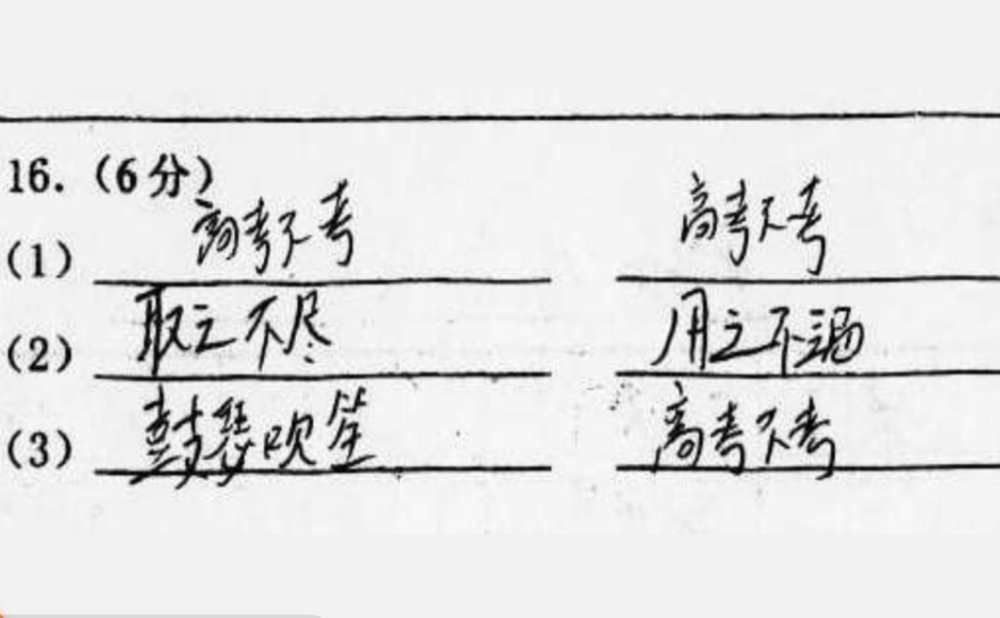 16.（6分）
（1） 高考不考 高考不考
（2） 取之不尽 用之不涸
（3） 鼓瑟吹笙 高考不考